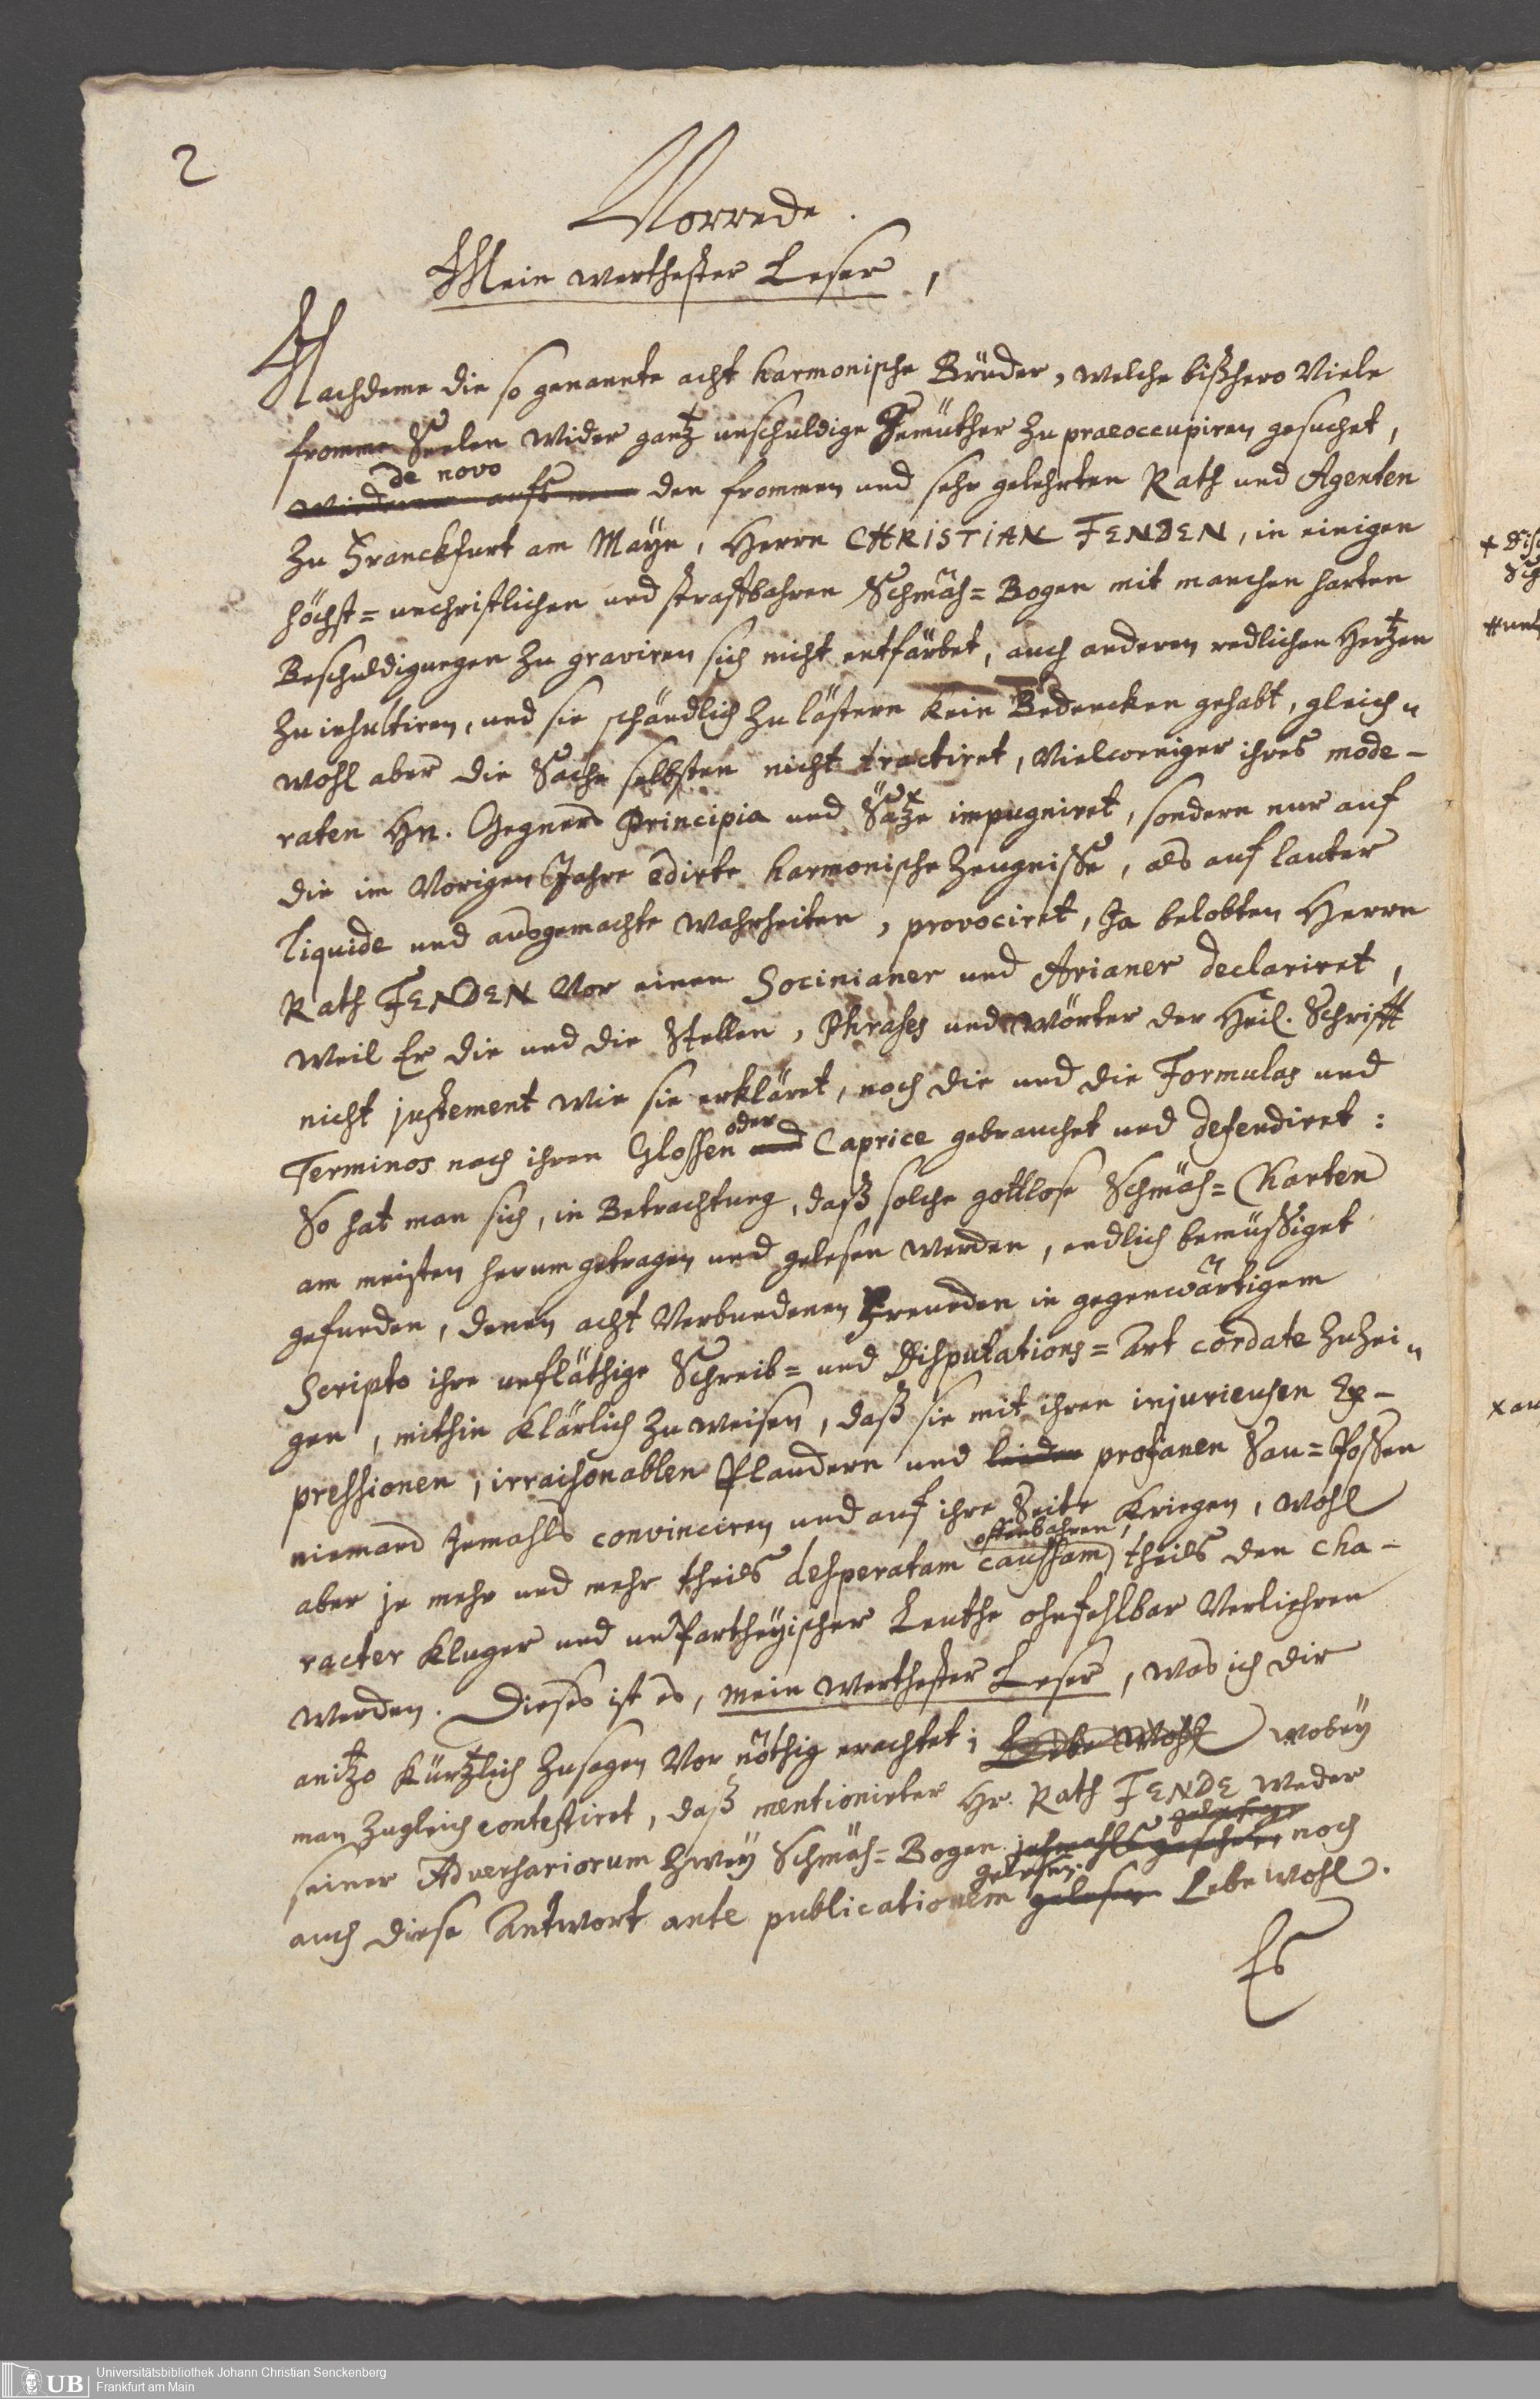 2
Vorrede.
Mein werthester Leser,
Nachdeme die so genannte acht harmonische Brüder, welche bißhero Viele
fromme Seelen wider gantz unschuldige Gemüther zu praeoccupiren gesuchet,
de novo
wiederum aufs neue den frommen und sehr gelehrten Rath und Agenten
zu Franckfurt am Mayn, Herrn CHRISTIAN FENDEN, in einigen
höchst= unchristlichen und straffbahren Schmäh= Bogen mit manchen harten
Beschuldigungen zu graviren sich nicht entfärbet, auch anderen redlichen Hertzen
zu insultiren, und sie schändlich zu lästern kein Bedencken gehabt, gleich=
wohl aber die Sache selbsten nicht tractiret, Vielweniger ihres mode-
raten Hn. Gegners Principia und Sätze impugniret, sondern nur auf
die im Vorigen Jahre edirte harmonische Zeugnisse, als auf lauter
liquide und ausgemachte Wahrheiten, provociret, Ja belobten Herrn
Rath FENDEN Vor einen Socinianer und Arianer declariret,
Weil Er die und die Stellen, Phrases und Wörter der Heil. Schrifft
nicht justement wie sie erkläret, noch die und die Formulas und
oder
Terminos nach ihren Glossen und Caprice gebrauchet und defendiret:
So hat man sich, in Betrachtung, daß solche gottlose Schmäh= Charten
am meisten herum getragen und gelesen werden, endlich bemüssiget
gefunden, denen acht Verbundenen Freunden in gegenwärtigem
Scripto ihre unfläthige Schreib= und Disputations= Art cordate zu zei=
gen, mithin klärlich zu weisen, daß sie mit ihren injurieusen Ex-
pressionen, irraisonablen Plaudern und profanen Sau= Possen
niemand jemahls convinciren und auf ihre Seite kriegen, wohl
offenbahren
aber je mehr und mehr theils desperatam caussam, theils den cha-
racter kluger und unPartheyischer Leuthe ohnfehlbar Verliehren
werden. Dieses ist es, mein werthester Leser, was ich dir
anitzo kürtzlich zu sagen Vor nöthig erachtet; Lebe wohl wobey
man zugleich contestiret, daß mentionirter Hr. Rath FENDE weder
seiner Adversariorum zwey Schmäh= Bogen jehmahls gesehen, noch
gelesen.
auch diese Antwort ante publicationem gelesen Lebe wohl.
Es
Universitätsbibliothek Johann Christian Senckenberg
Frankfurt am Main
UB